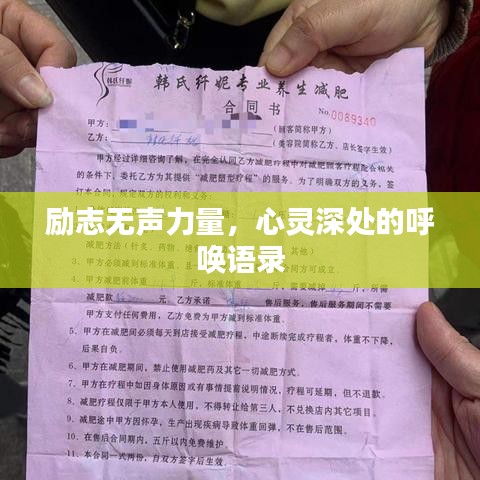 韩氏纤妮
韩氏纤妮专业养生减肥
合同书
No.0089340
甲方：
(顾客简称甲方)
乙方：
(美容院简称乙方、店长签字生效)
甲方经过详细咨询了解，在完全认同乙方减肥疗程中对减肥顾客疗程配合相关
的条件下，委托乙方为其提供“减肥塑型疗程”的服务。为了明确双方的义务，签
订本合同，规定双方的权利和义务：
励志无声力量，心灵深处的呼
唤语录
减肥方法
减肥款
元，乙方承诺
售后服务，售后服务期间不需要
甲方支付任何费用，乙方免费为甲方减到标准体重。
5．甲方在减肥间必须每天到店接受减肥疗程，中途断续完成疗程者，体重不下降，
后果自负。
6．甲方在减肥期间，禁止使用减肥药及其它一切减肥方式。
7．甲方在疗程中如因身体原因或有事情提前说明情况，疗程可延期，但不退款。
8．减肥疗程仅限于甲方本人使用，不得转让给第三人，不兑换店内其它项目。
9．减肥途中甲方因怀孕，生产出现疾病导致体重回弹，不在售后范围。
10．在售后合同期内，五斤以内免费维护。
11．本合同一式两份，自双方签字后生效。